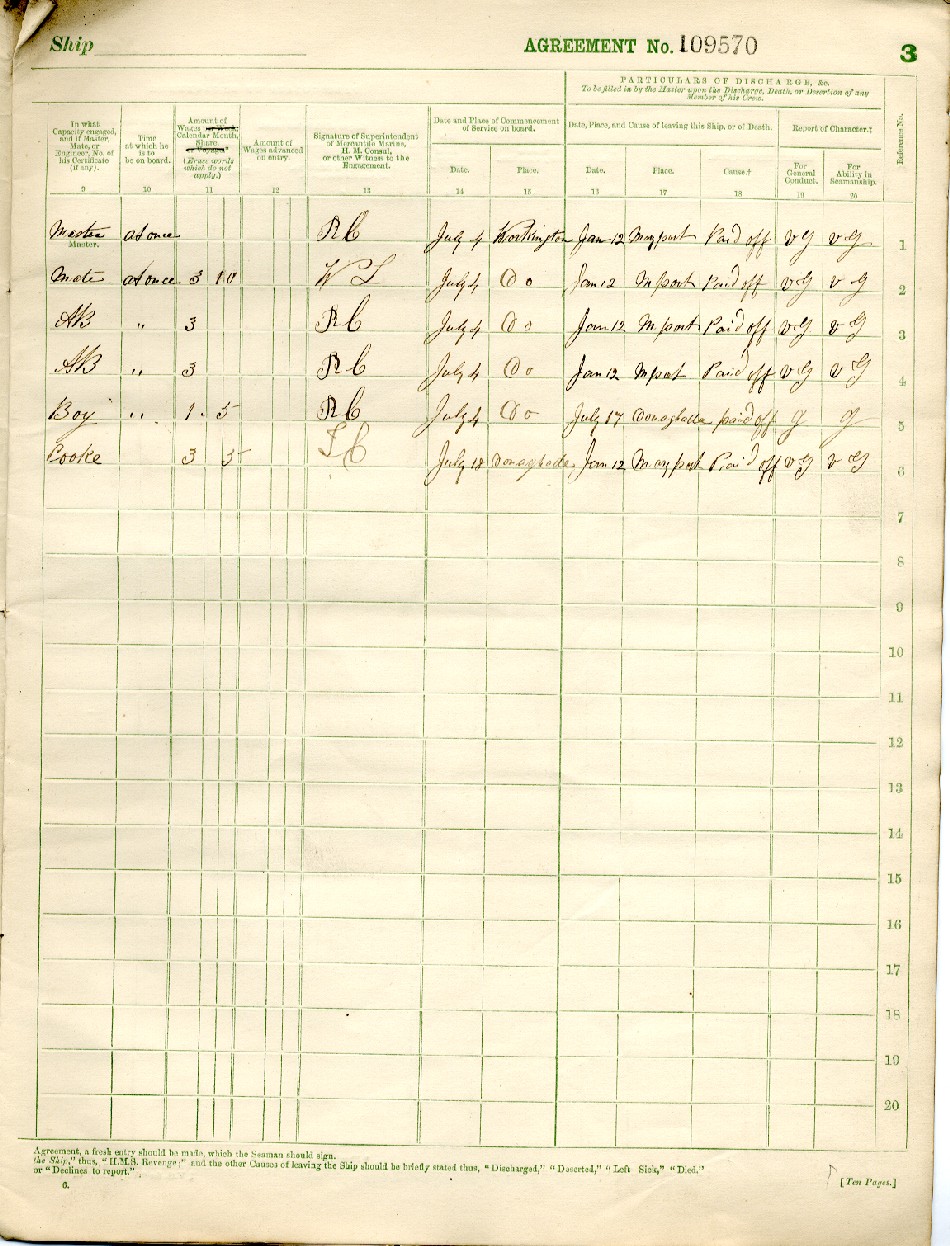 Ship AGREEMENT No. 109570 3
PARTICULARS OF DISCHARGE, &c.
To be filled in by the Master upon the Discharge, Death, or Desertion of any
Member of his Crew.
In what
Capacity engaged,
and if Master,
Mate, or
Engineer, No. of
his Certificate
(if any).
9
Time
at which he
is to
be on board.
10
Amount of
Wages
Calendar Month,
Share,
(Erase words
which do not
apply.)
11
Amount of
Wages advanced
on entry.
12
Signature of Superintendent
of Mercantile Marine,
H. M. Consul,
or other Witness to the
Engagement.
13
Date and Place of Commencement
of Service on board.
Date.
14
Place.
15
Date, Place, and Cause of leaving this Ship, or of Death.
Date.
Place.
17
Cause.†
18
Report of Character.‡
For
General
Conduct.
19
For
Ability in
Seamanship.
20
Reference No.
Master at once RC July 4 Workington Jan 12 Maryport Paid off v G v G 1
Master.
Mate at once 3 10 July 4 Do Jan 12 Mport Paid off v G v G 2
AB " 3 RC July 4 Do Jan 12 Mport Paid off v G v G 3
AB " 3 RC July 4 Do Jan 12 Mport Paid off v G v G 4
Boy " 1 5 RC July 4 Do July 17 Donaghadee paid off G G 5
Cooke 3 5 July 18 Donaghadee Jan 12 Maryport Paid off v G v G 6
7
8
9
10
11
12
13
14
15
16
17
18
19
20
Agreement, a fresh entry should be made, which the Seaman should sign.
the Ship," thus, "H.M.S. Revenge;" and the other Causes of leaving the Ship should be briefly stated thus, "Discharged," "Deserted," "Left Sick," "Died."
or "Declines to report."
6. [Ten Pages.]